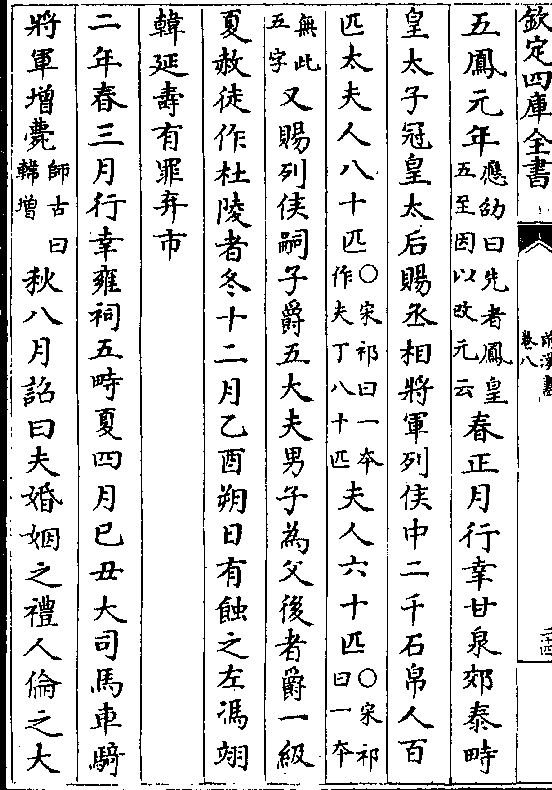 欽定四庫全書
前漢書
卷八
二十四
五鳳元年應劭曰先者鳳皇五至因以改元云春正月行幸甘泉郊泰畤
皇太子冠皇太后賜丞相將軍列侯中二千石帛人百
匹太夫人八十匹○宋祁曰一本作夫丁八十匹夫人六十匹○宋祁曰一本
無此五字又賜列侯嗣子爵五大夫男子為父後者爵一級
夏赦徒作杜陵者冬十二月乙酉朔日有蝕之左馮翊
韓延壽有罪弃市
二年春三月行幸雍祠五畤夏四月己丑大司馬車騎
將軍增薨師古曰韓增秋八月詔曰夫婚姻之禮人倫之大